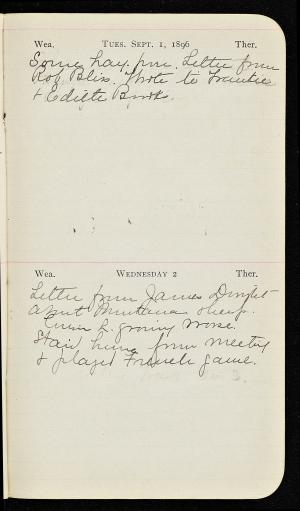 Wea. TUES. SEPT. 1, 1896 Ther.
Some hay fever. Letter from
Rob Bliss. Wrote to
& Edith
Wea. WEDNESDAY 2 Ther.
Letter from James Dwight
about Montana sheep.
growing worse.
Staid home from meeting
& played French game.